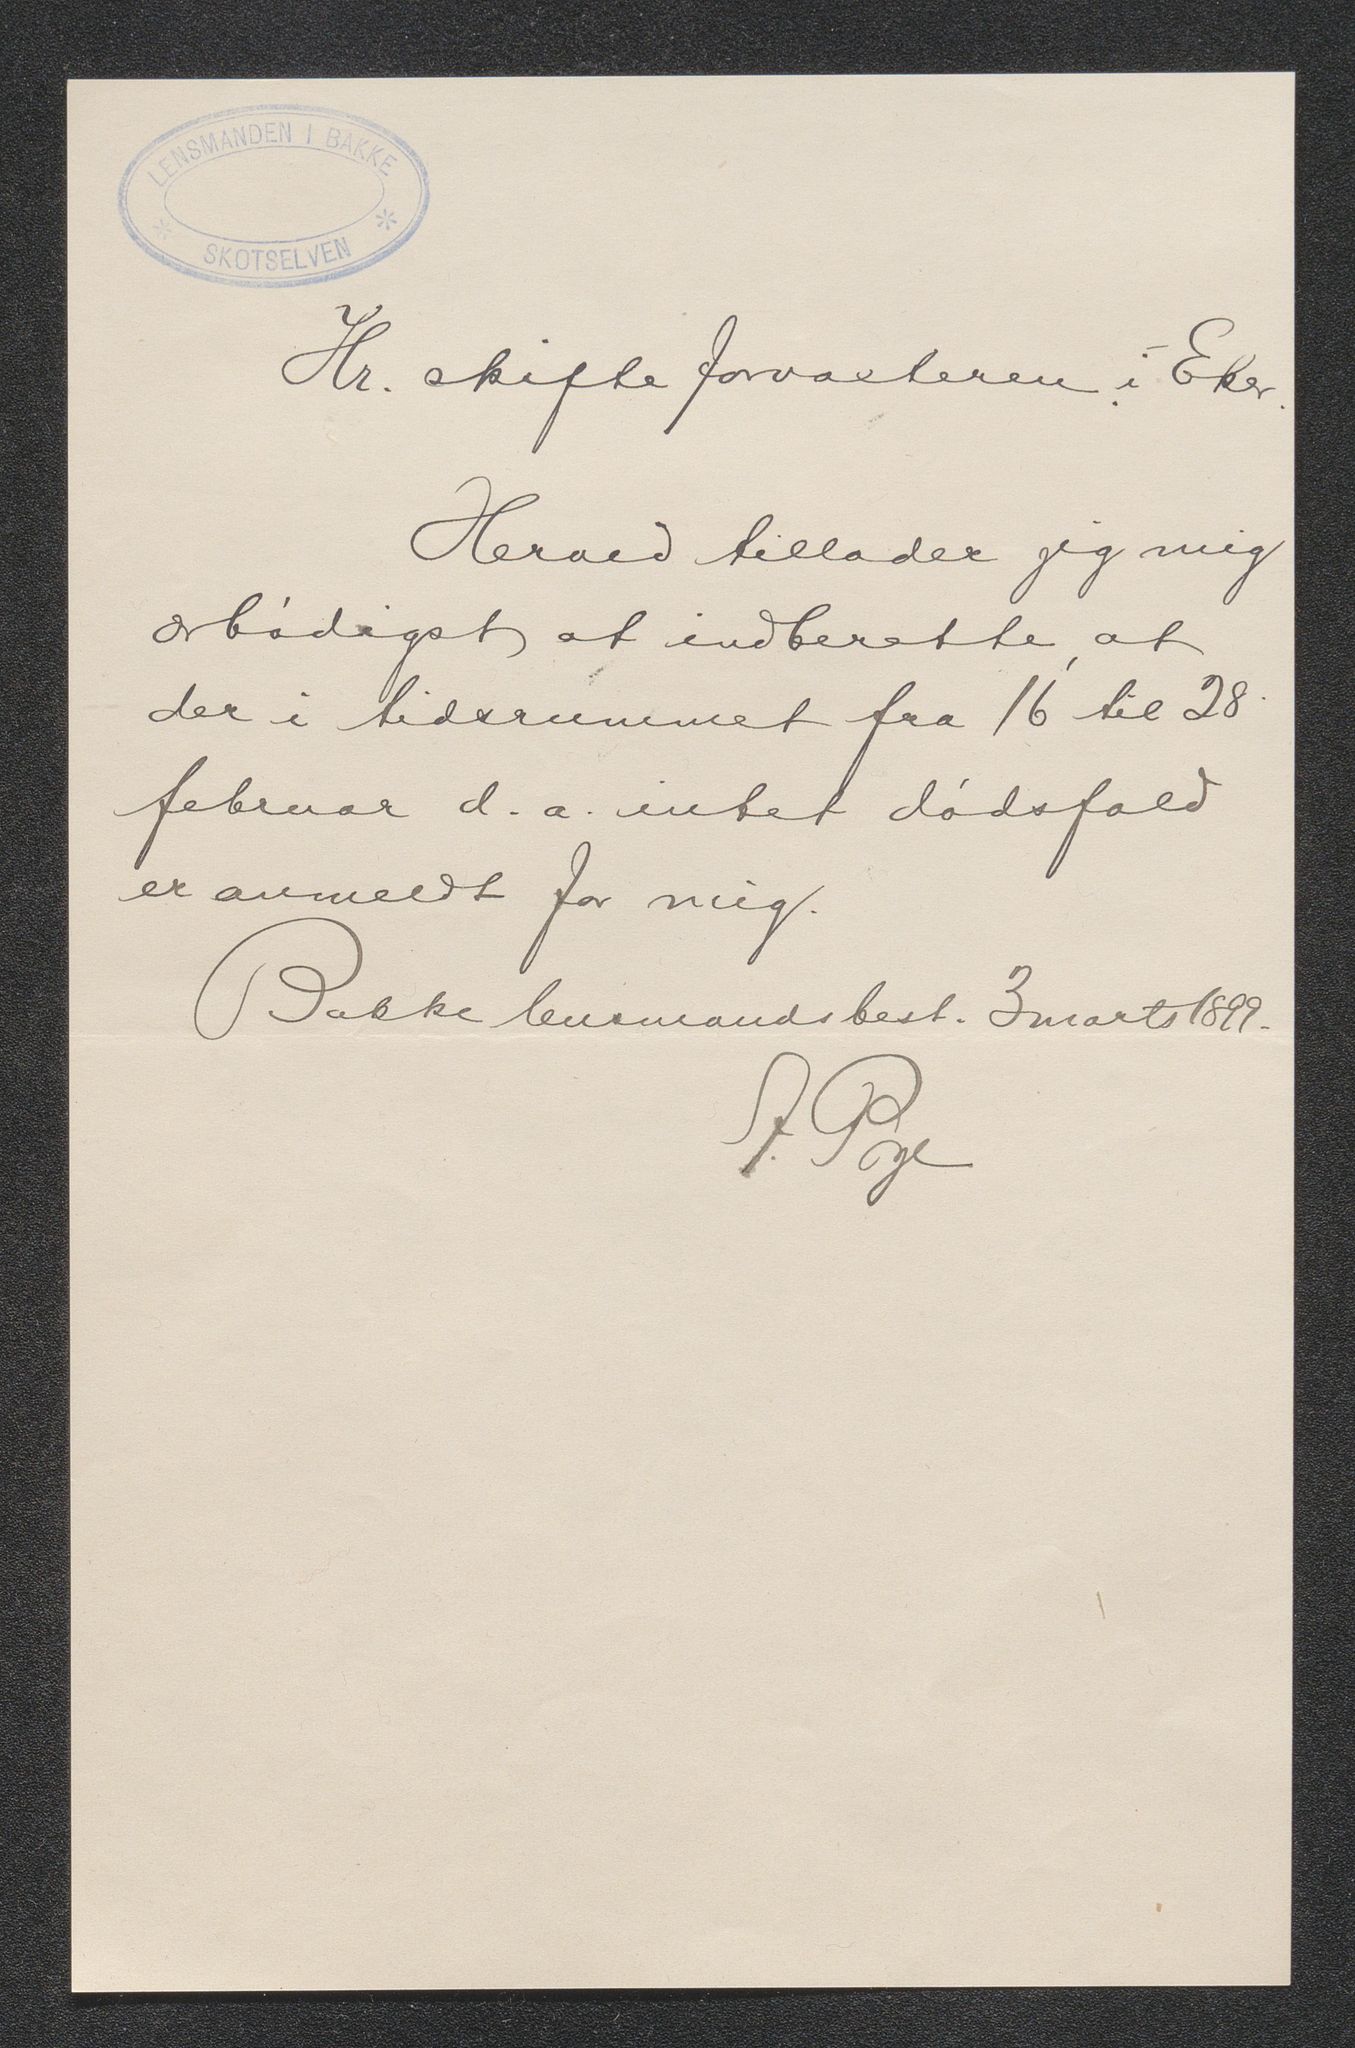 LENSMANDEN I BAKKE
* SKOTSELVEN *
Hr. skifteforvalteren i Eker.
Herved tillader jeg mig
ærbódigst at indberette, at
der i tidsrummet fra 16 til 28
februar d. a. intet dódsfald
er anmeldt for mig.
Bakke lensmandsbest. 3 marts 1899.